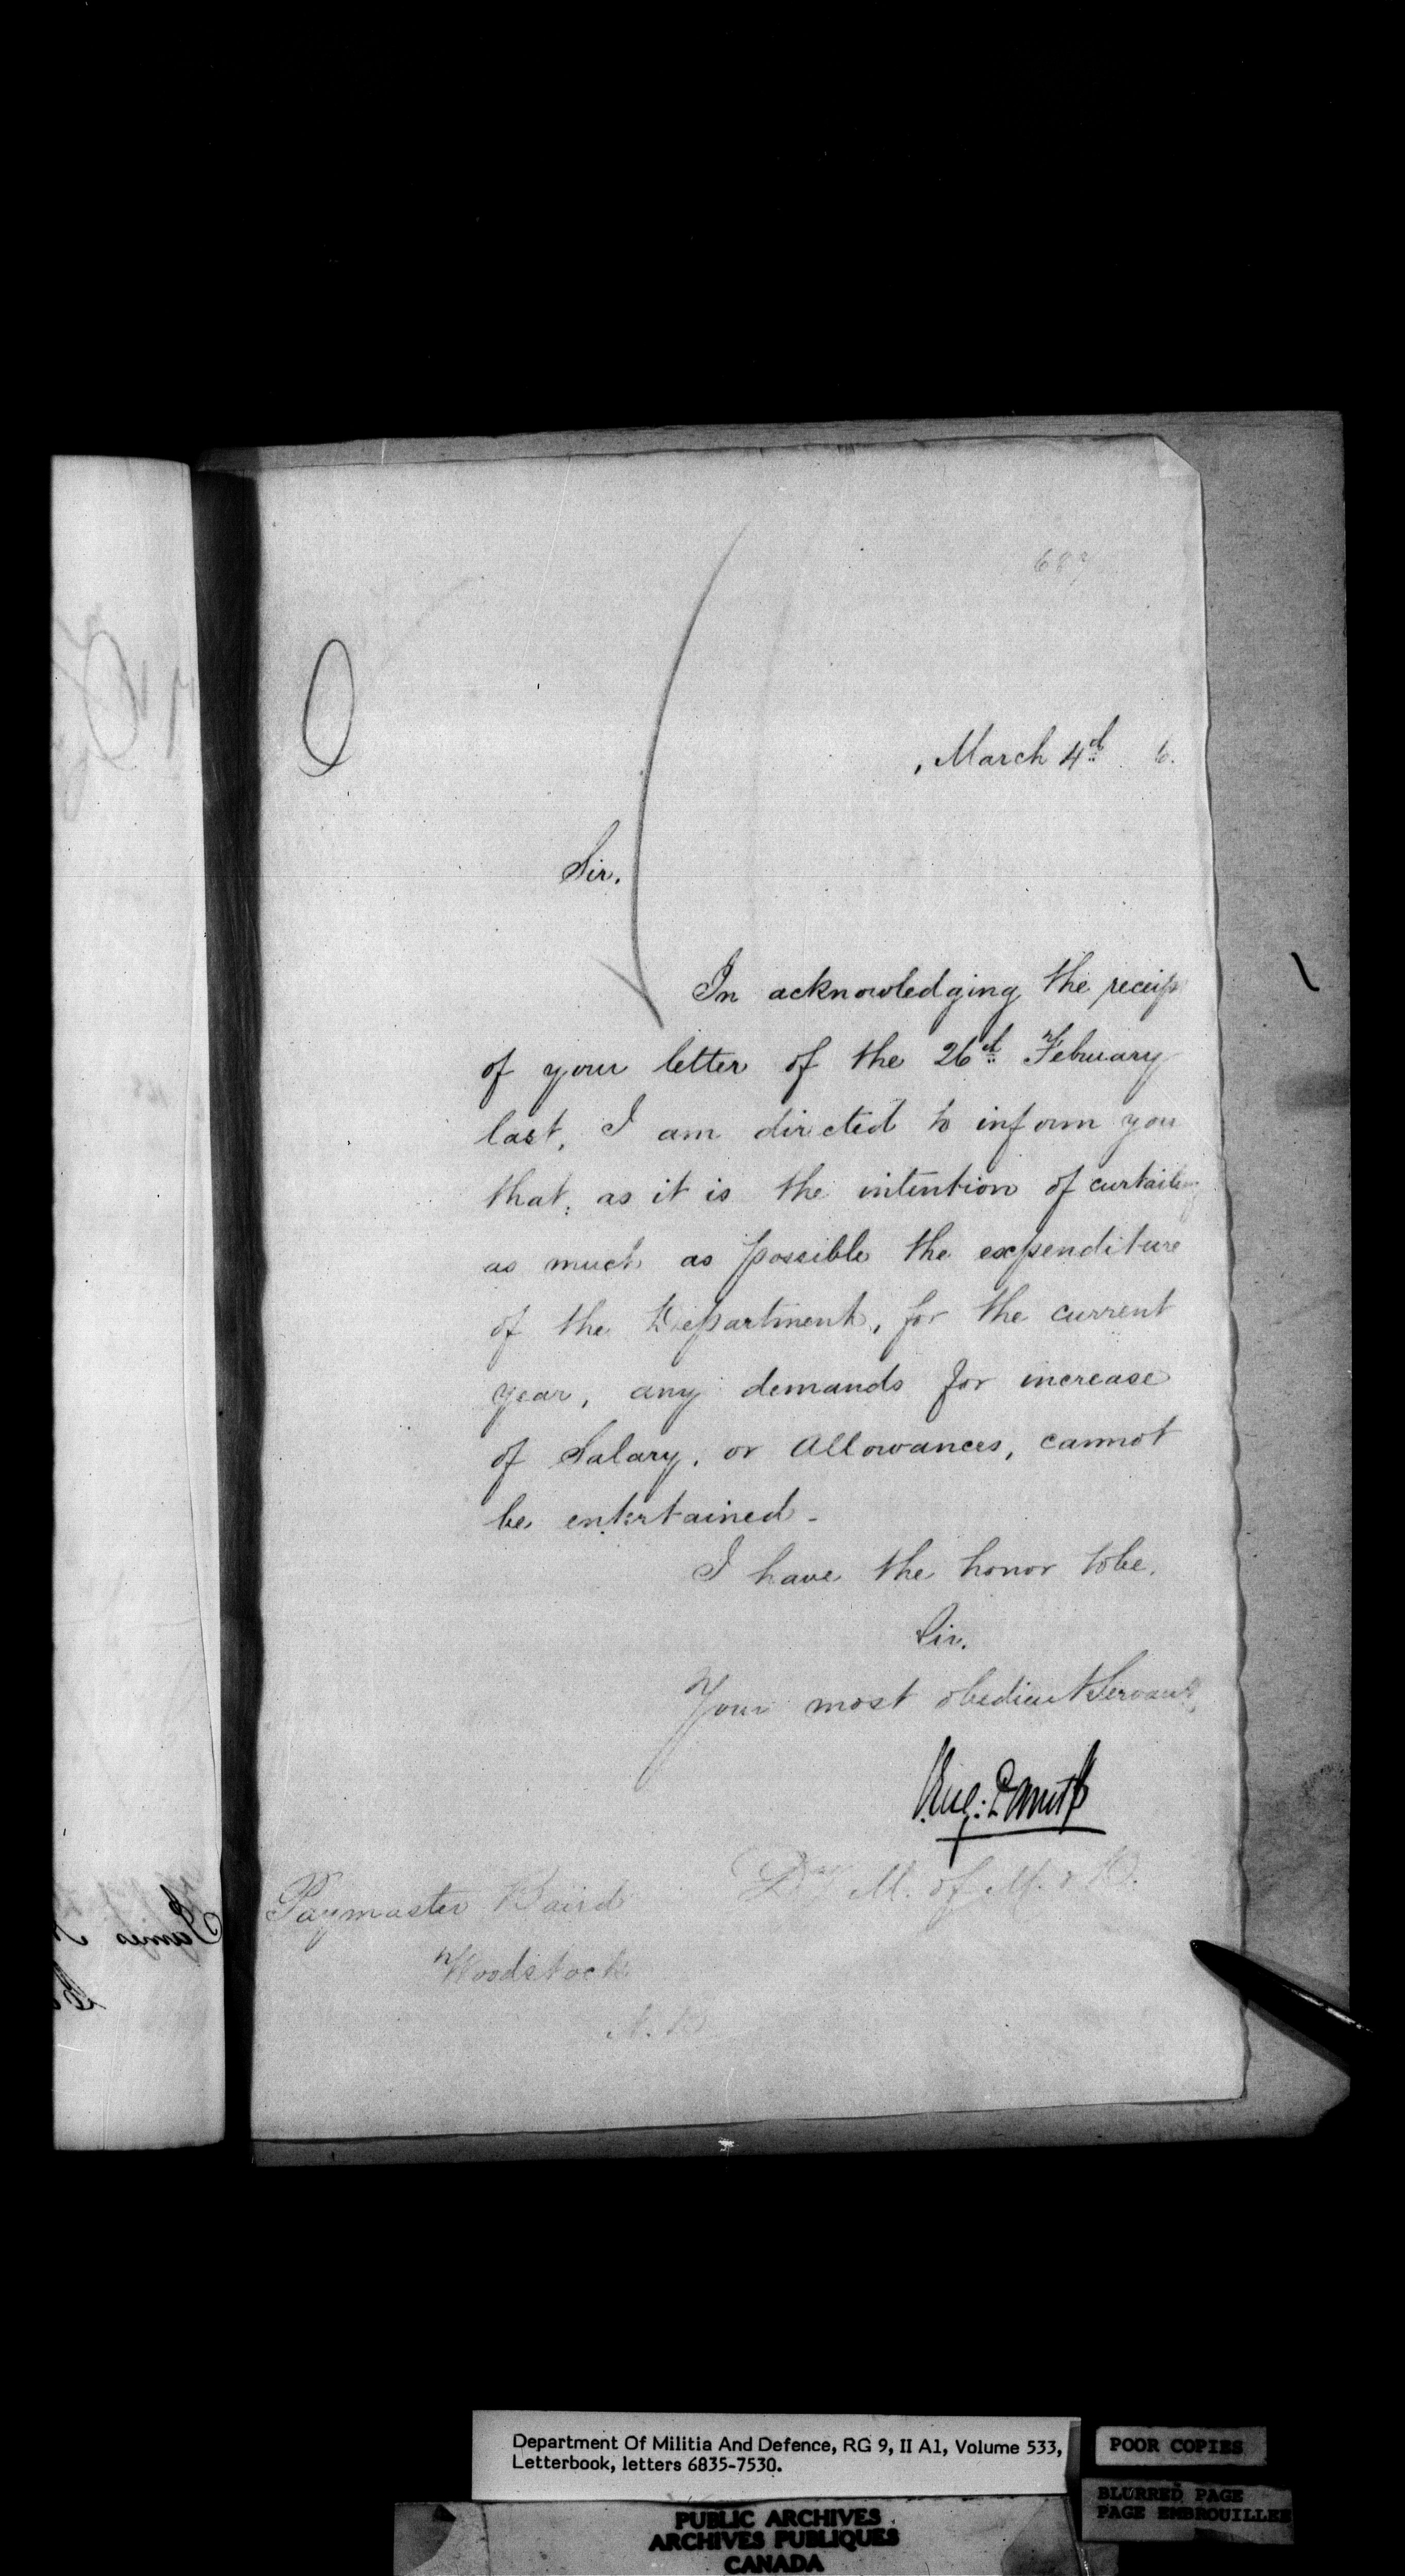 687
, March 4th 6.
Sir.
In acknowledging the receip
of your letter of the 26th Febuary
last, I am directed to inform you
that, as it is the intention of curtailing
as much as possible the expenditure
of the Department, for the current
year, any demands for increase
of Salary, or Allowances, cannot
be entertained -
I have the honor to be,
Sir.
Your most obedient Servant,
Dy M. of M. & D.
Paymaster Baird
Woodstock
N. B.
Department Of Militia And Defence, RG 9, II A1, Volume 533,
Letterbook, letters 6835-7530.
POOR COPIES
BLURRED PAGE
PAGE EMBROUILLEE
PUBLIC ARCHIVES
ARCHIVES PUBLIQUES
CANADA